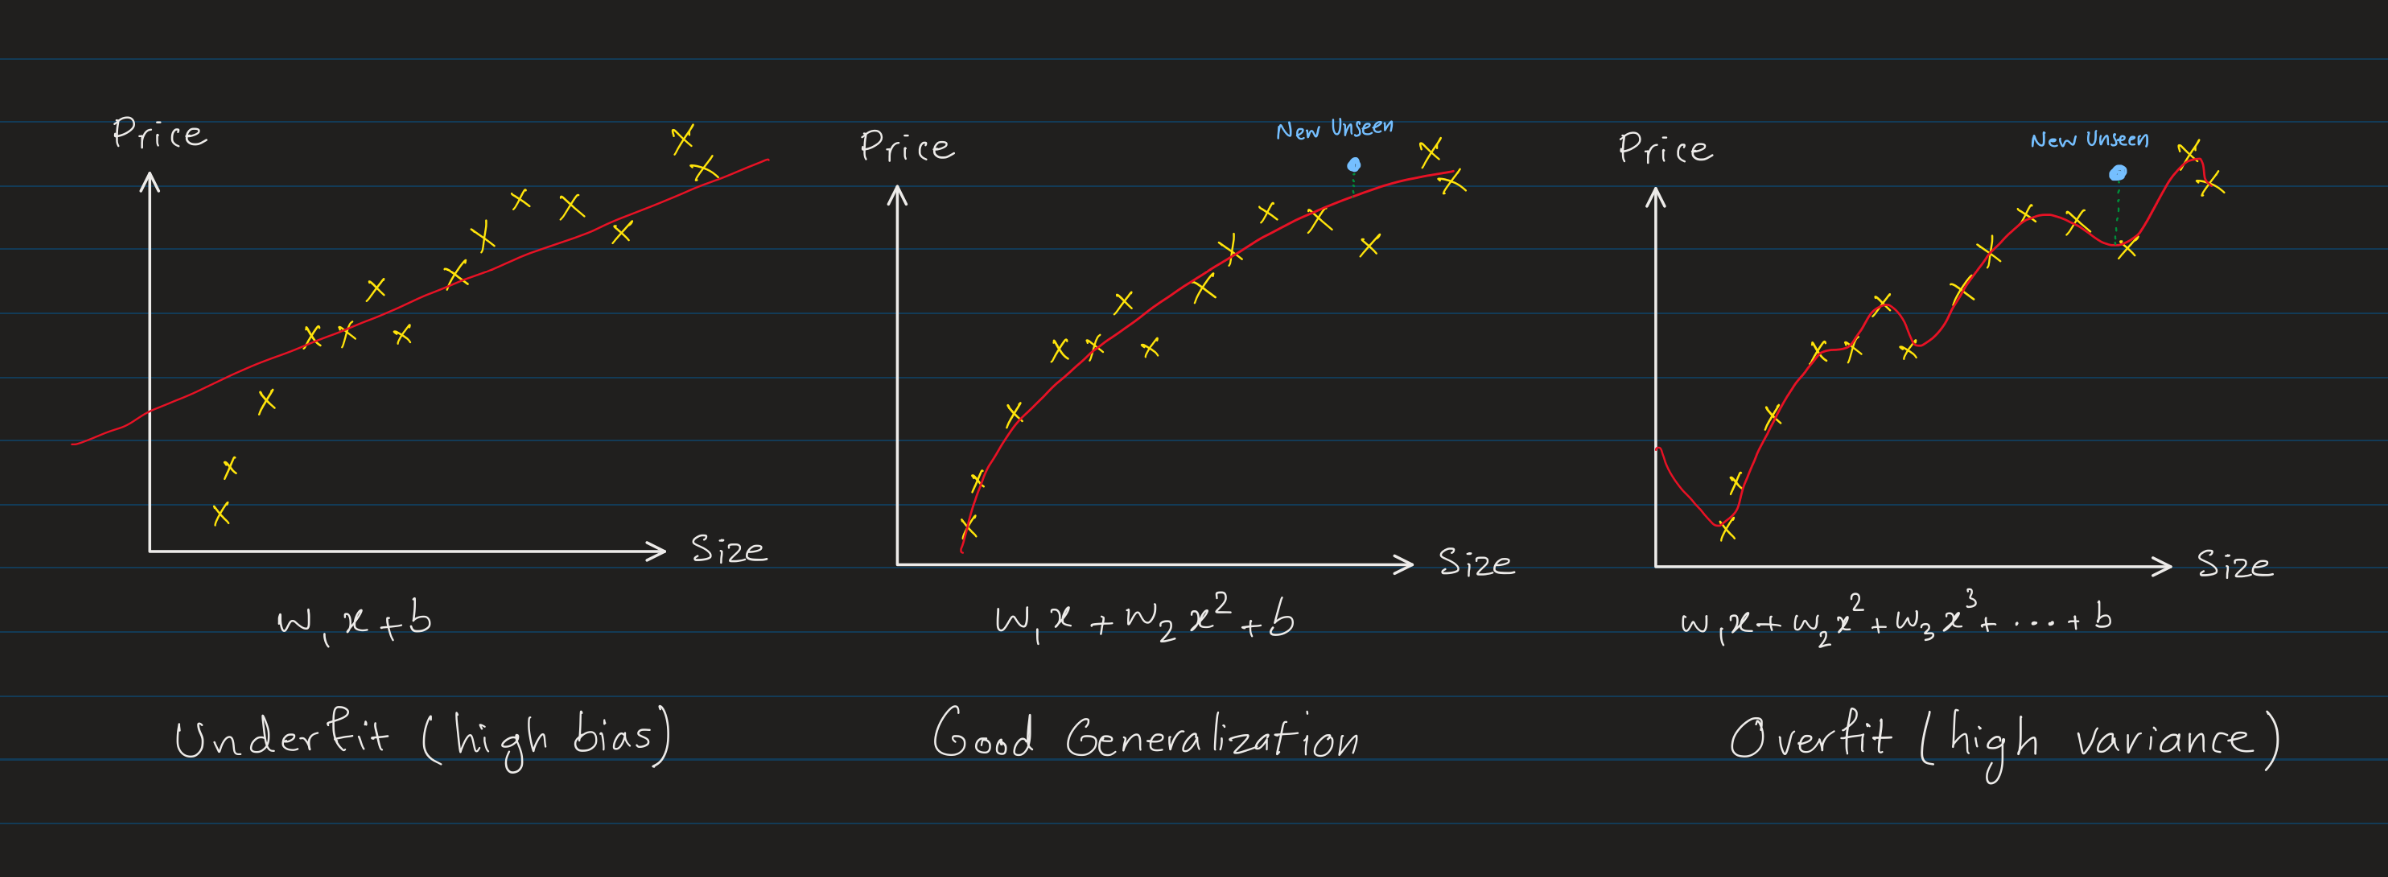 Price
Size
w₁x+b
Underfit (high bias)
Price
New Unseen
Size
w₁x + w₂x² + b
Good Generalization
Price
New Unseen
Size
w₁x + w₂x² + w₃x³ + .... + b
Overfit (high variance)